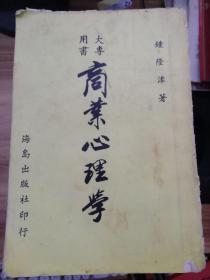 鍾隆津 著
大專用書
商業心理學
海島出版社印行